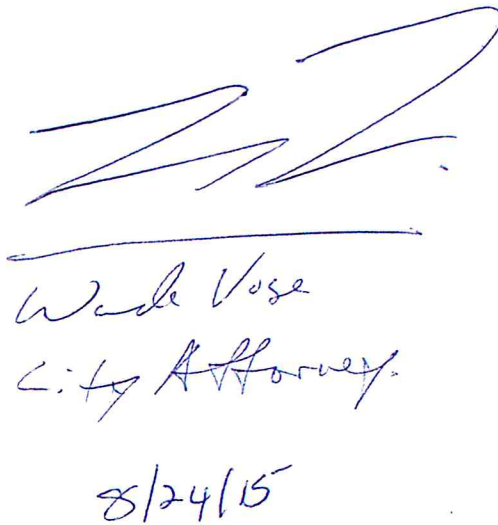 Wade Vose
City Attorney.
8/24/15